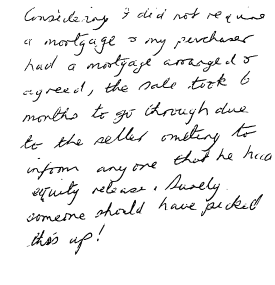 Considering I did not require
a mortgage & my purchaser
had a mortgage arranged &
agreed, the sale took 6
months to go through due
to the seller omiting to
inform anyone that he had
equity release. Surely
someone should have picked
this up!